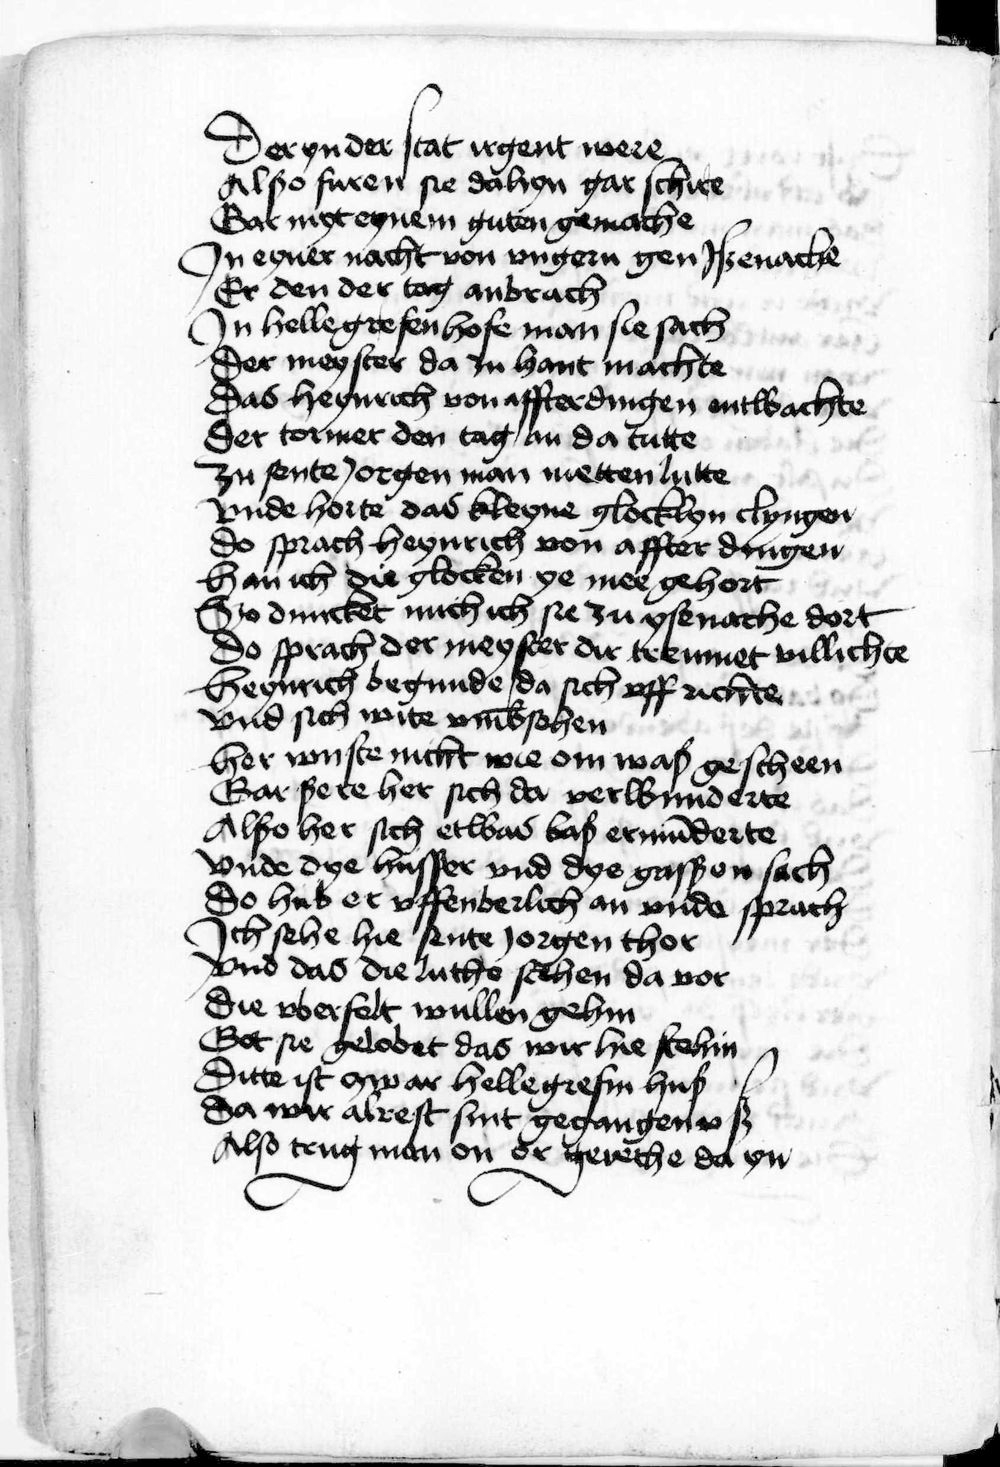 Der yn der stat irgent were
Alßo furen sie dahyn gar schire
Gar myt eynem guten gemache
In eyner nacht von vngern gen Jßenache
Er den der tag anbrach
In hellegrefen hofe man sie sach
Der meyster da zu hant machte
Das heynrich von affterdingen entwachte
Der tormer den tag an da tutte
Zu sente Jorgen man metten lutte
Vnde horte das kleyne glocklyn clyngen
Do sprach heynrich von affter dingen
Han ich die glocken ye mee gehort
So duncket mich ich sie zu ysenache dort
Do sprach der meyster dir treumet villichte
Heynrich begunde da sich vff richte
Vnd sich wite vmbsehen
Her wuste nicht wie om waß gescheen
Gar ßere her sich da verwunderte
Alßo her sich etwas baß ermūderte
Vnde dye husßer vnd dye gasßen sach
Do hub er vffenberlich an vnde sprach
Ich sehe hie sente Jorgen thor
Vnd das die luthe stehen da vor
Die vber felt wullen gehin
Got sie gelobet das wir hie stehin
Ditte ist zwar hellegrefin huß
Da wir alrest sint gegangen vß
Also trug man on or gerethe da yn